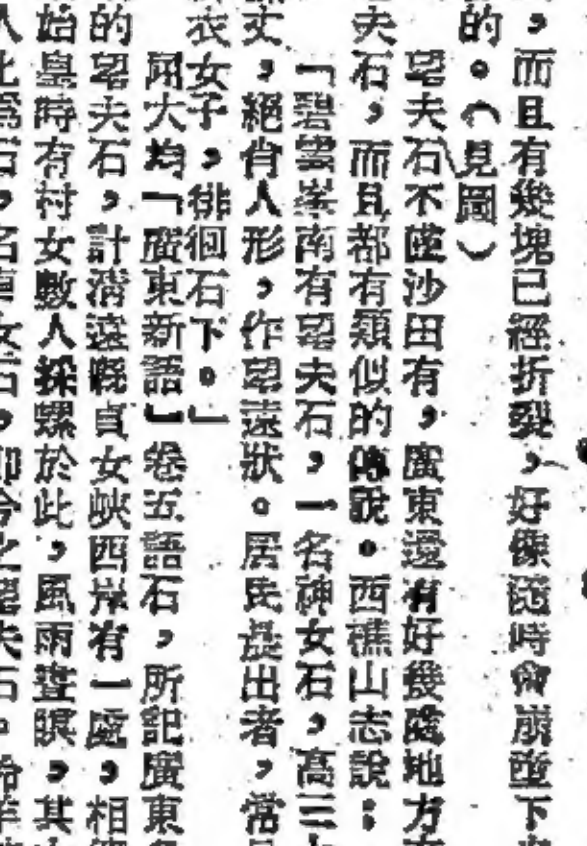 ，而且有幾塊已經折裂，好像隨時會崩墮下
的。（見圖）
望夫石不僅沙田有，廣東還有好幾處地方
夫石，而且都有類似的傳說。西樵山志說：
「碧雲峯南有望夫石，一名神女石，高三
丈，絕肖人形，作望遠狀。居民晨出者，常
衣女子，徘徊石下。」
屈大均「廣東新語」卷五語石，所記廣東
的望夫石，計清遠嘅貞女峽西岸有一處，相
始皇時有村女數人採螺於此，風雨晝暝，其
石，名貞女石，即今之望夫石。